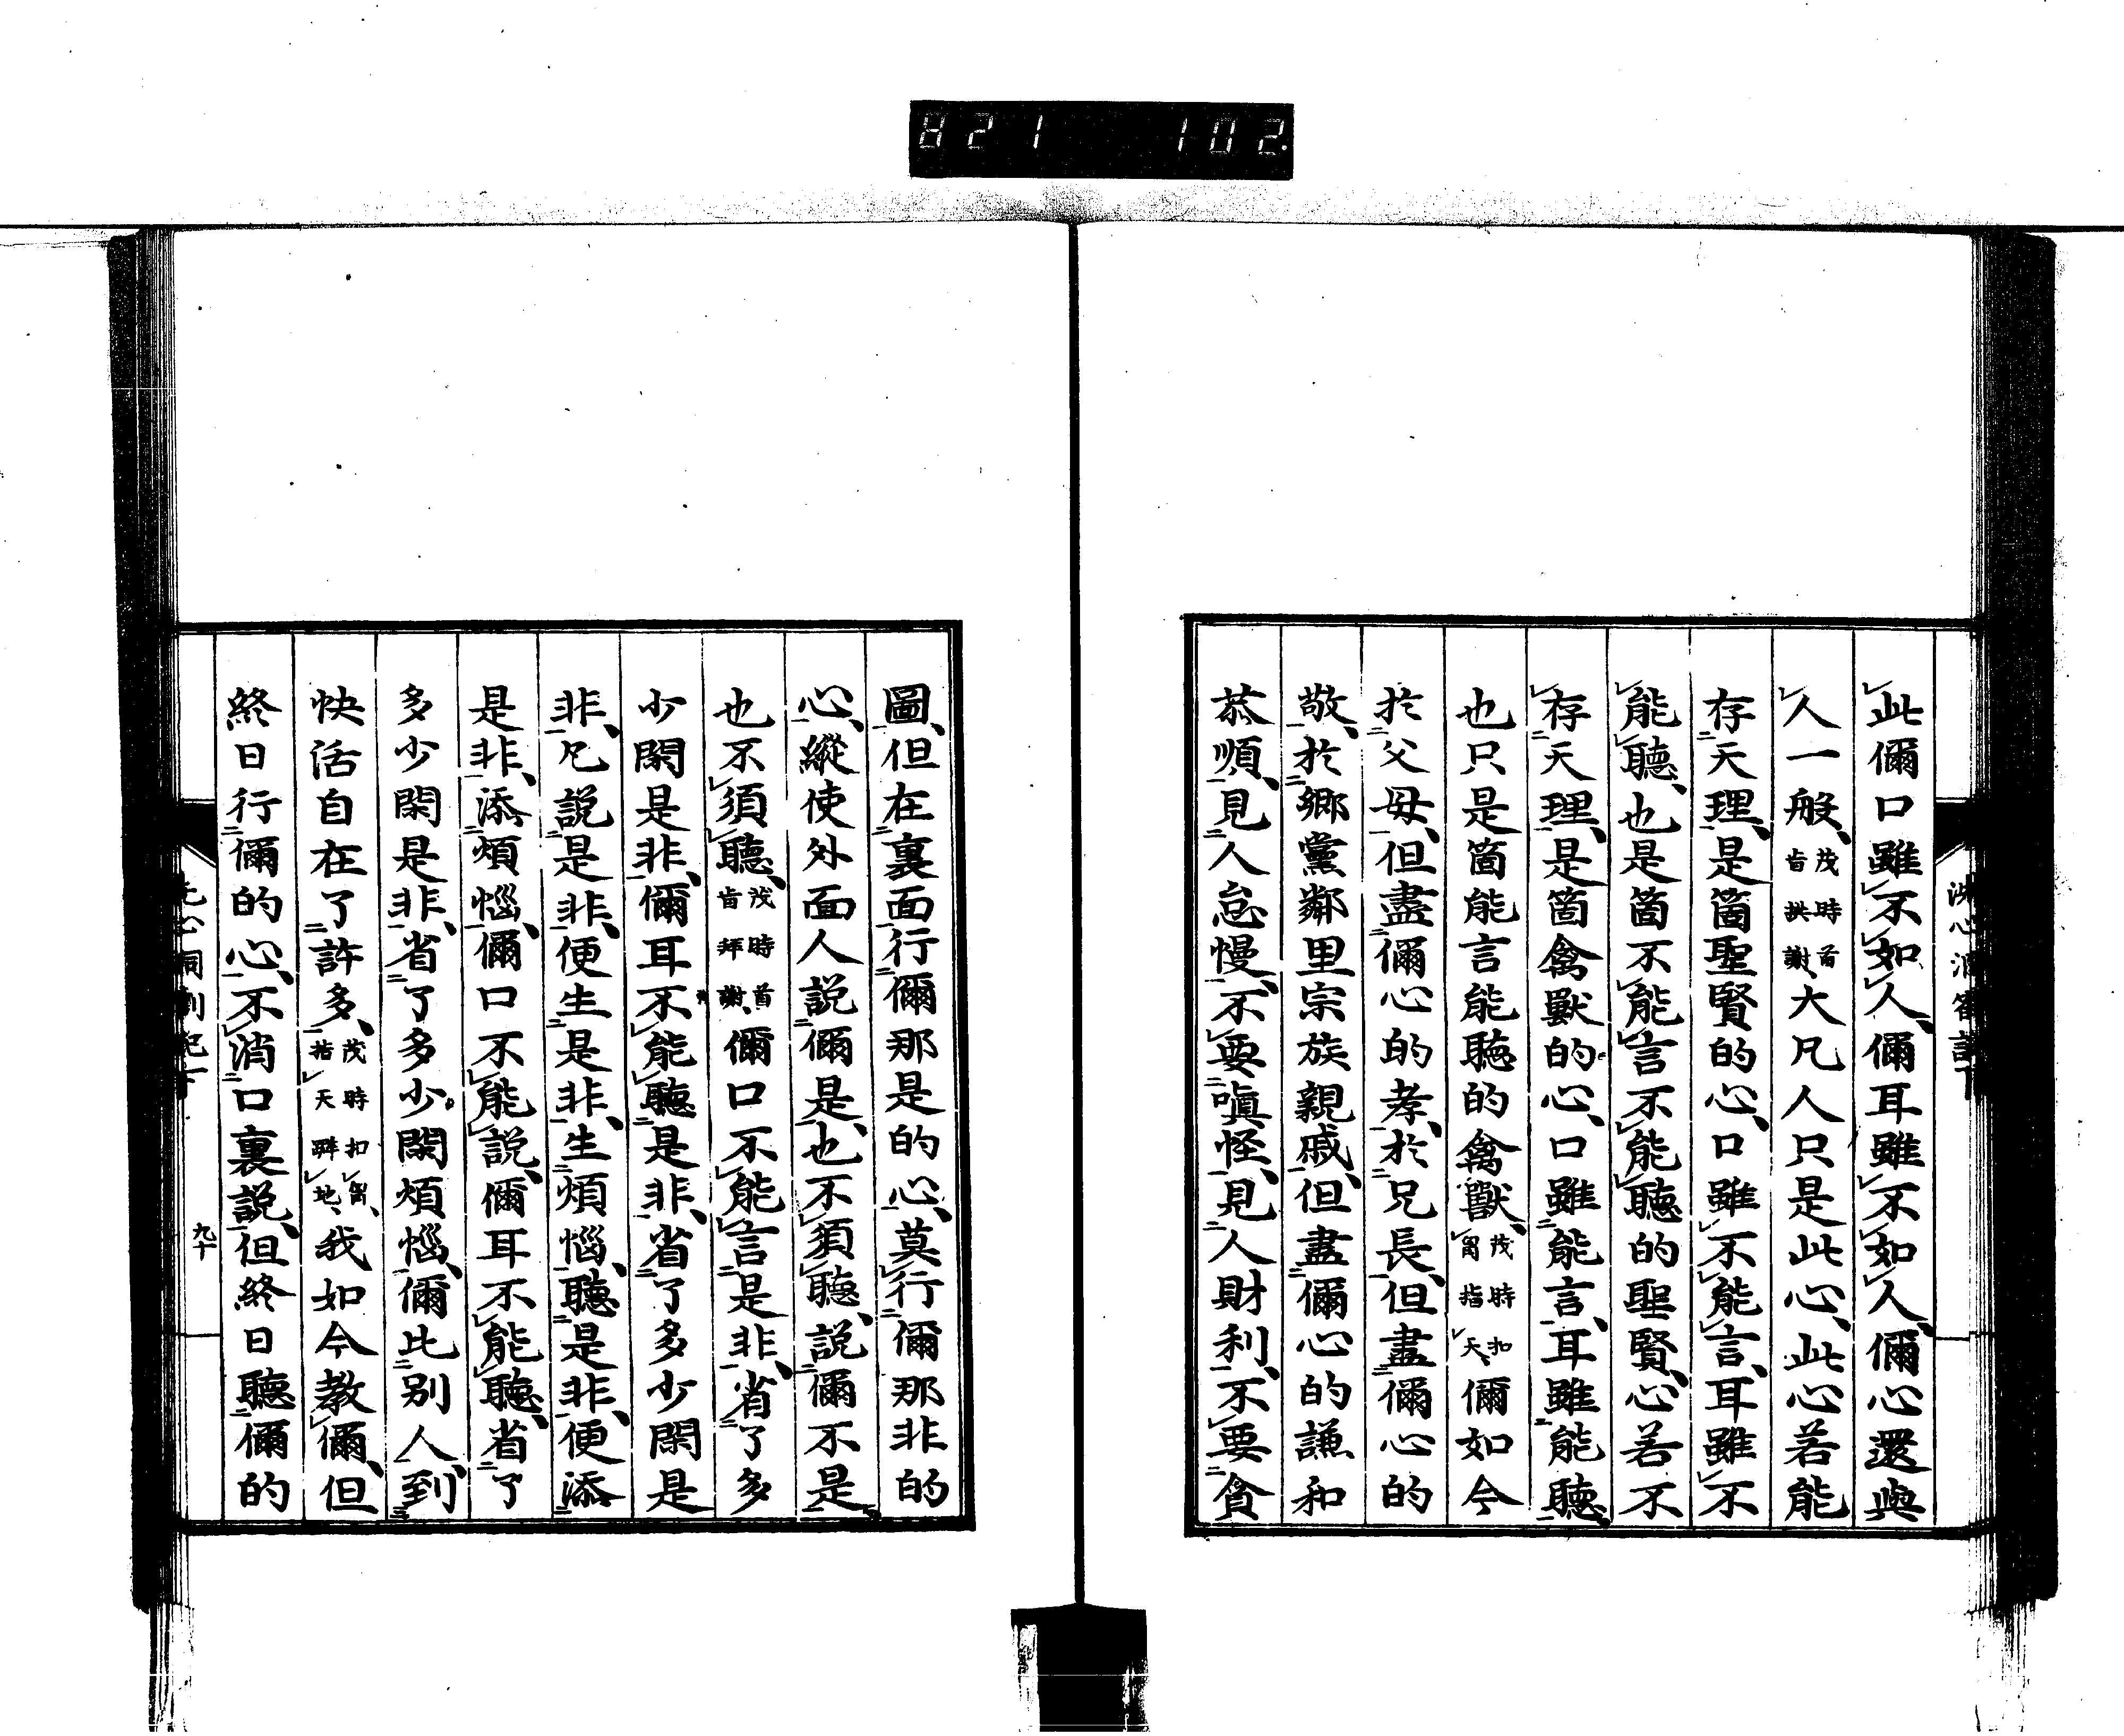 821 102.
此儞口雖不如人、儞耳雖不如人、儞心還與
人一般、茂時首肯拱謝、大凡人只是此心、此心若能
存天理、是箇聖賢的心、口雖不能言、耳雖不
能聽、也是箇不能言不能聽的聖賢、心若不
存天理、是箇禽獸的心、口雖能言、耳雖能聽、
也只是箇能言能聽的禽獸、茂時扣胷指天、儞如今
於父母、但盡儞心的孝、於兄長、但盡儞心的
敬、於鄉黨鄰里宗族親戚、但盡儞心的謙和
恭順、見人怠慢、不要嗔怪、見人財利、不要貪
圖、但在裏面行儞那是的心、莫行儞那非的
心、縱使外面人說儞是、也不須聽、說儞不是
也不須聽、茂時首肯拜謝、儞口不能言是非、省了多
少閑是非、儞耳不能聽是非、省了多少閑是
非、凡說是非、便生是非、生煩惱、聽是非、便添
是非、添煩惱、儞口不能說、儞耳不能聽、省了
多少閑是非、省了多少閑煩惱、儞比別人、到
快活自在了許多、茂時扣胷、指天躃地、我如今教儞、但
終日行儞的心、不消口裏說、但終日聽儞的
九十